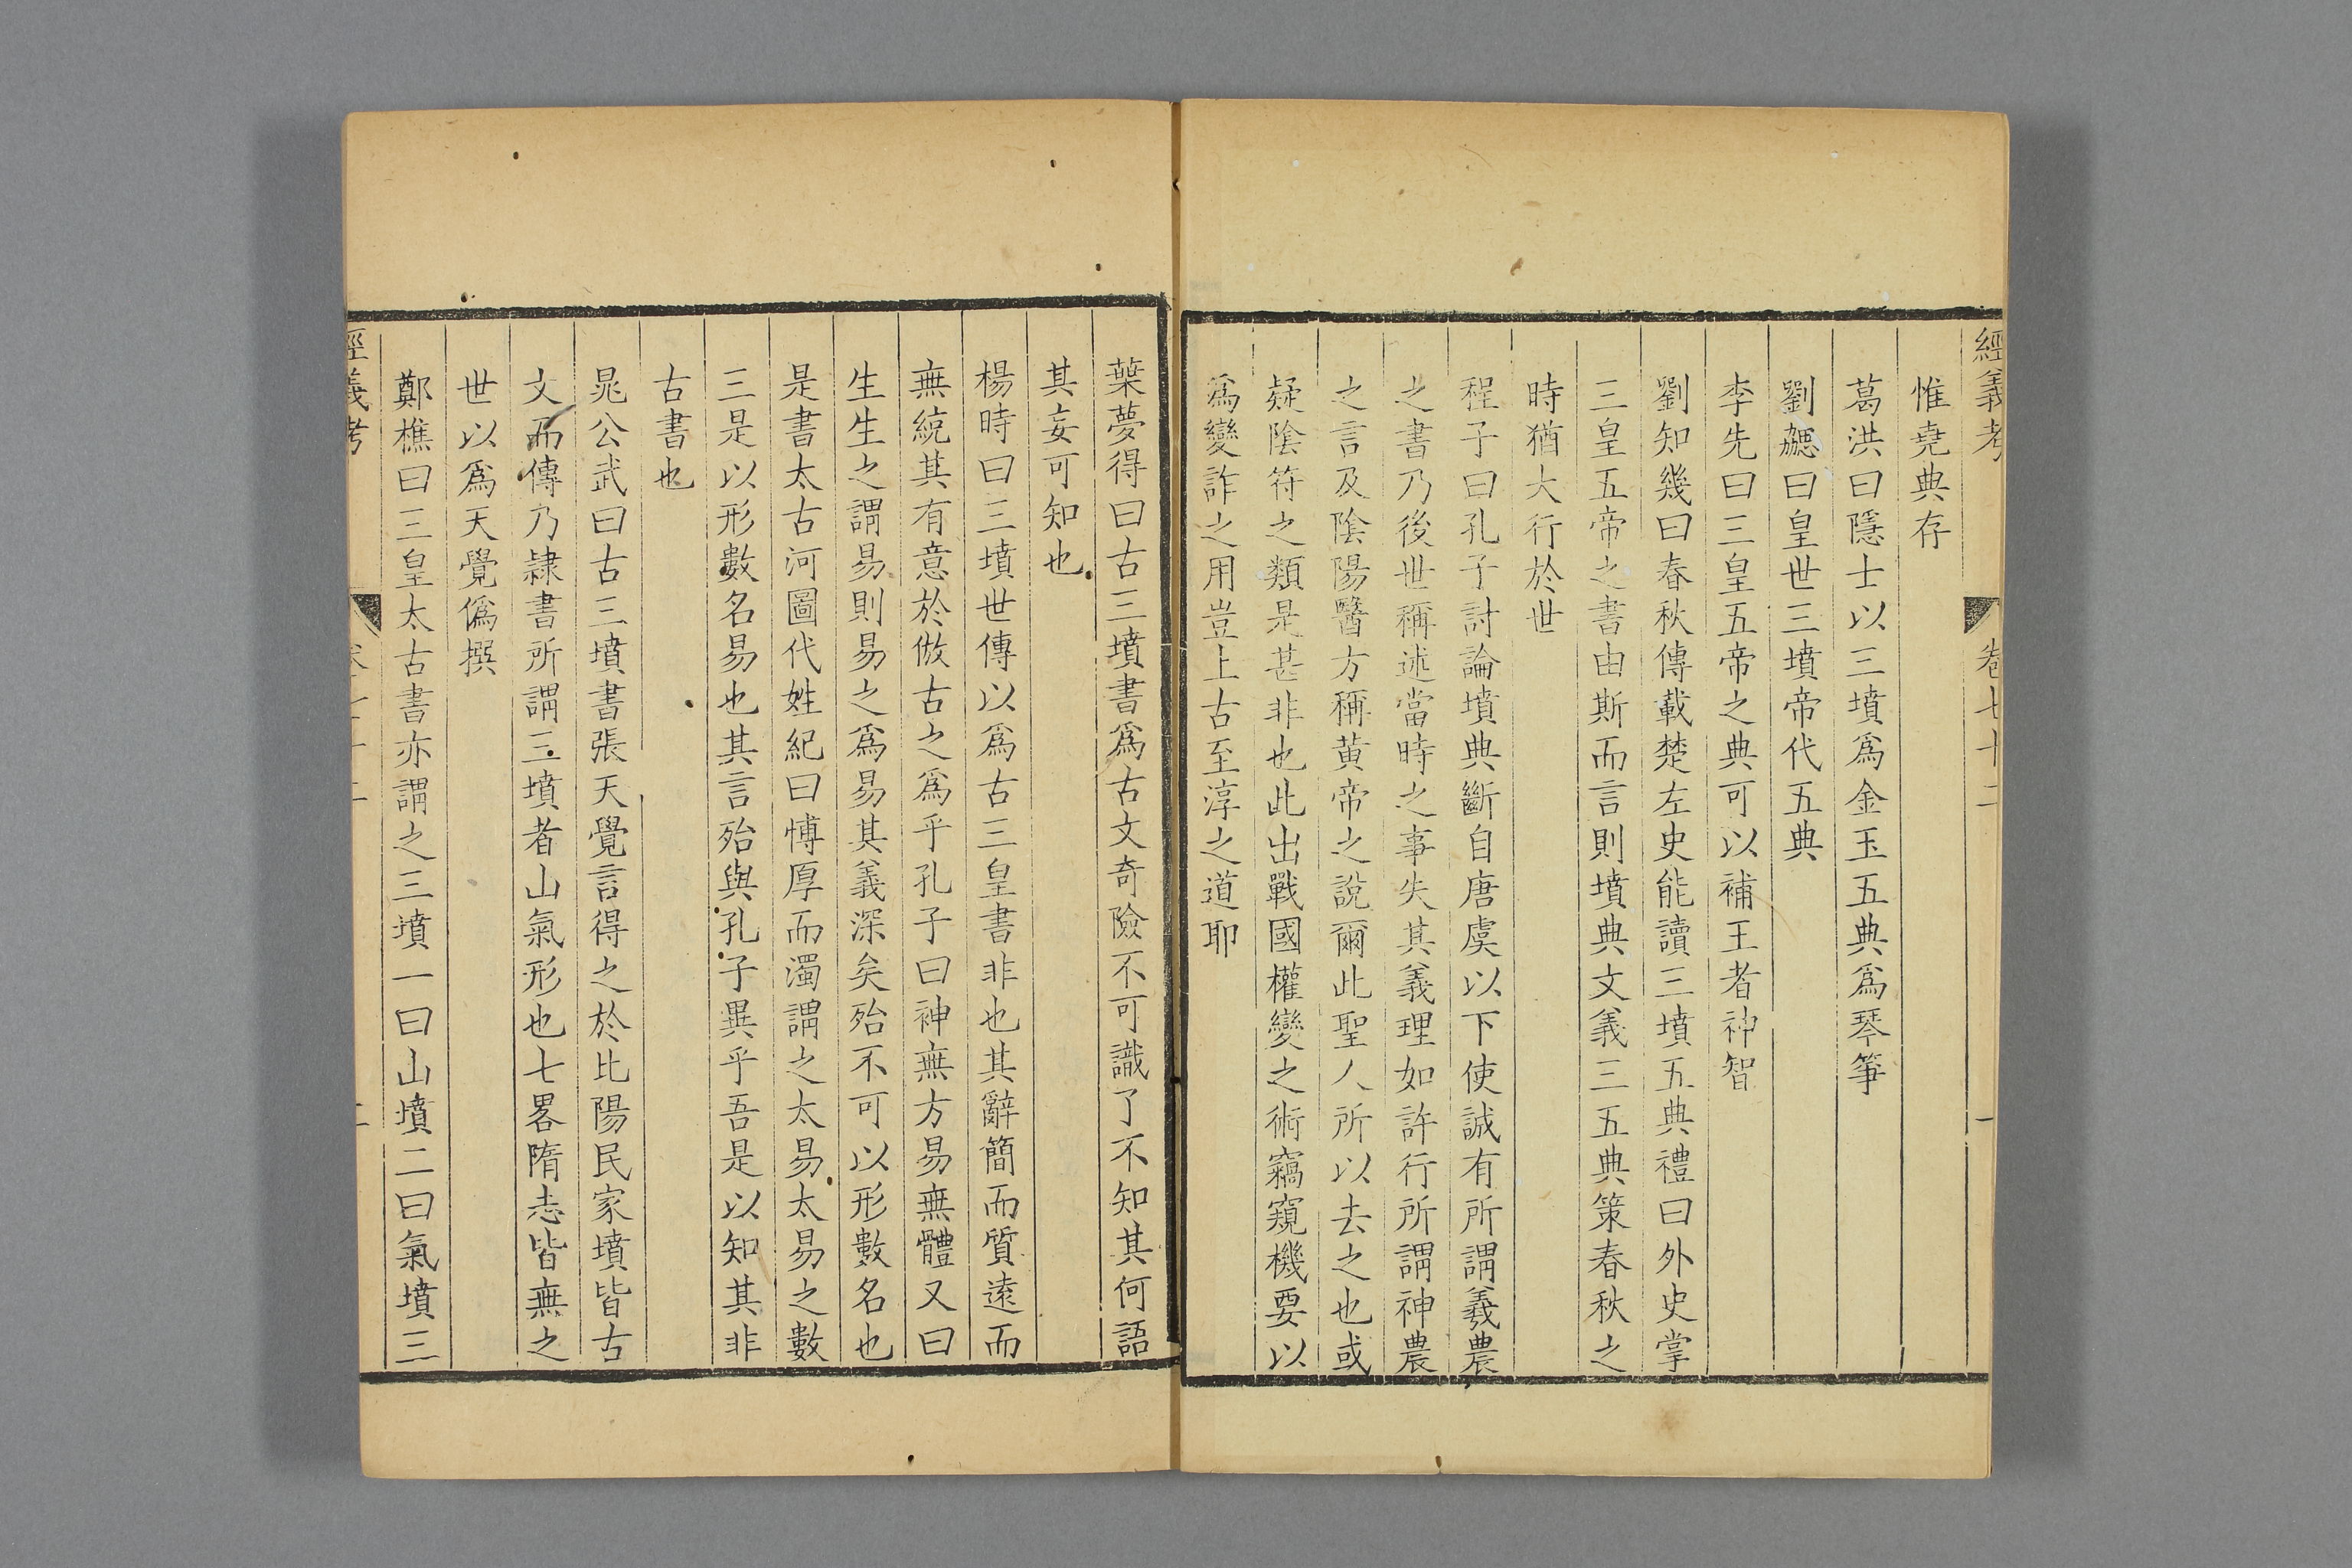 經義考 卷七十二 一
惟堯典存
葛洪曰隱士以三墳爲金玉五典爲琴箏
劉勰曰皇世三墳帝代五典
李先曰三皇五帝之典可以補王者神智
劉知幾曰春秋傳載楚左史能讀三墳五典禮曰外史掌
三皇五帝之書由斯而言則墳典文義三五典策春秋之
時猶大行於世
程子曰孔子討論墳典斷自唐虞以下使誠有所謂羲農
之書乃後世稱述當時之事失其義理如許行所謂神農
之言及陰陽醫方稱黄帝之說爾此聖人所以去之也或
疑陰符之類是甚非也此出戰國權變之術竊窺機要以
爲變詐之用豈上古至淳之道耶
葉夢得曰古三墳書爲古文奇險不可識了不知其何語
其妄可知也
楊時曰三墳世傳以爲古三皇書非也其辭簡而質遠而
無統其有意於倣古之爲乎孔子曰神無方易無體又曰
生生之謂易則易之爲易其義深矣殆不可以形數名也
是書太古河圖代姓紀曰博厚而濁謂之太易太易之數
三是以形數名易也其言殆與孔子異乎吾是以知其非
古書也
晁公武曰古三墳書張天覺言得之於比陽民家墳皆古
文而傳乃隷書所謂三墳者山氣形也七畧隋志皆無之
世以爲天覺僞撰
鄭樵曰三皇太古書亦謂之三墳一曰山墳二曰氣墳三
經義考